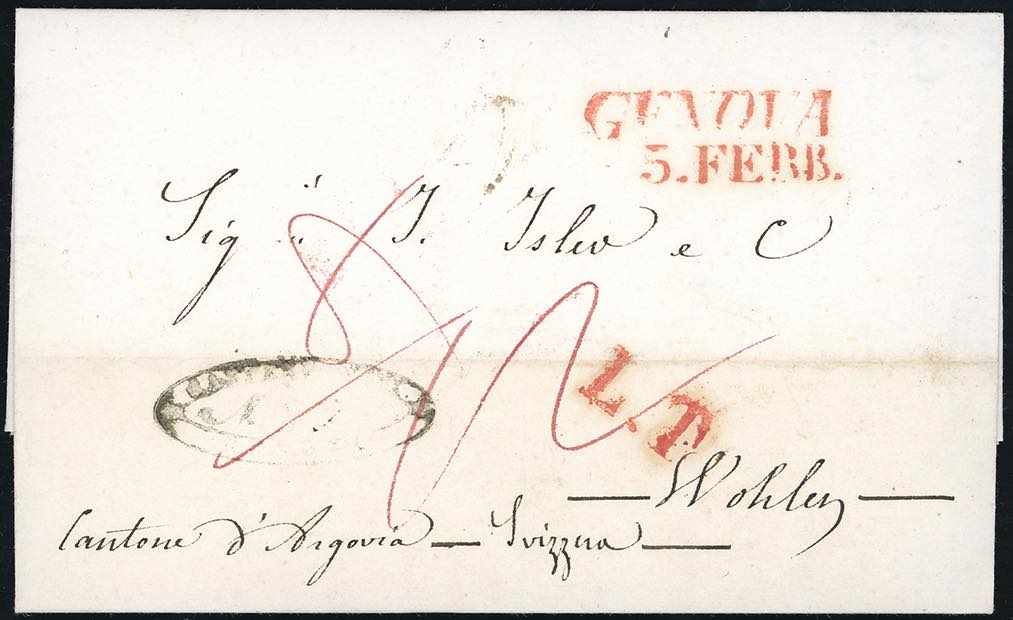 GENOVA
5. FEBB.
Sig.ri J. Isler e C
L.T
— Wohlen —
Cantone d'Argovia — Svizzera —